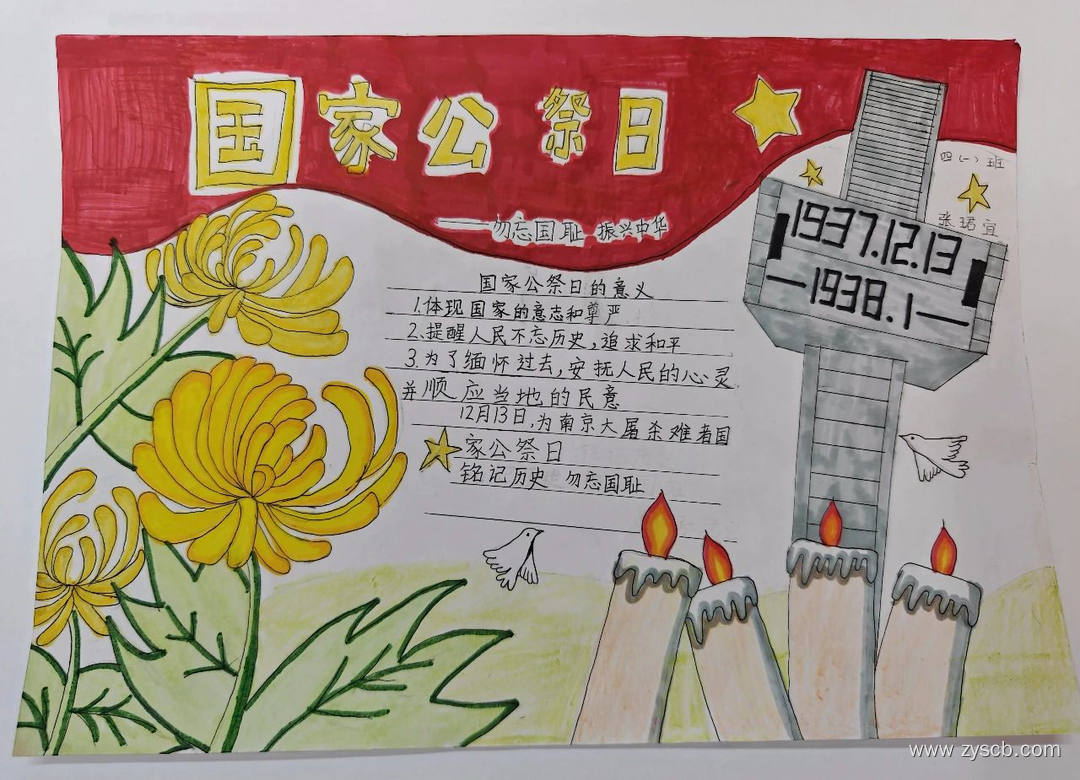 国家公祭日
——勿忘国耻 振兴中华
四(一)班
张珺宜
1937.12.13
—1938.1—
国家公祭日的意义
1.体现国家的意志和尊严
2.提醒人民不忘历史,追求和平
3.为了缅怀过去,安抚人民的心灵
并顺应当地的民意
12月13日,为南京大屠杀难者国
家公祭日
铭记历史 勿忘国耻
www.zyscb.com